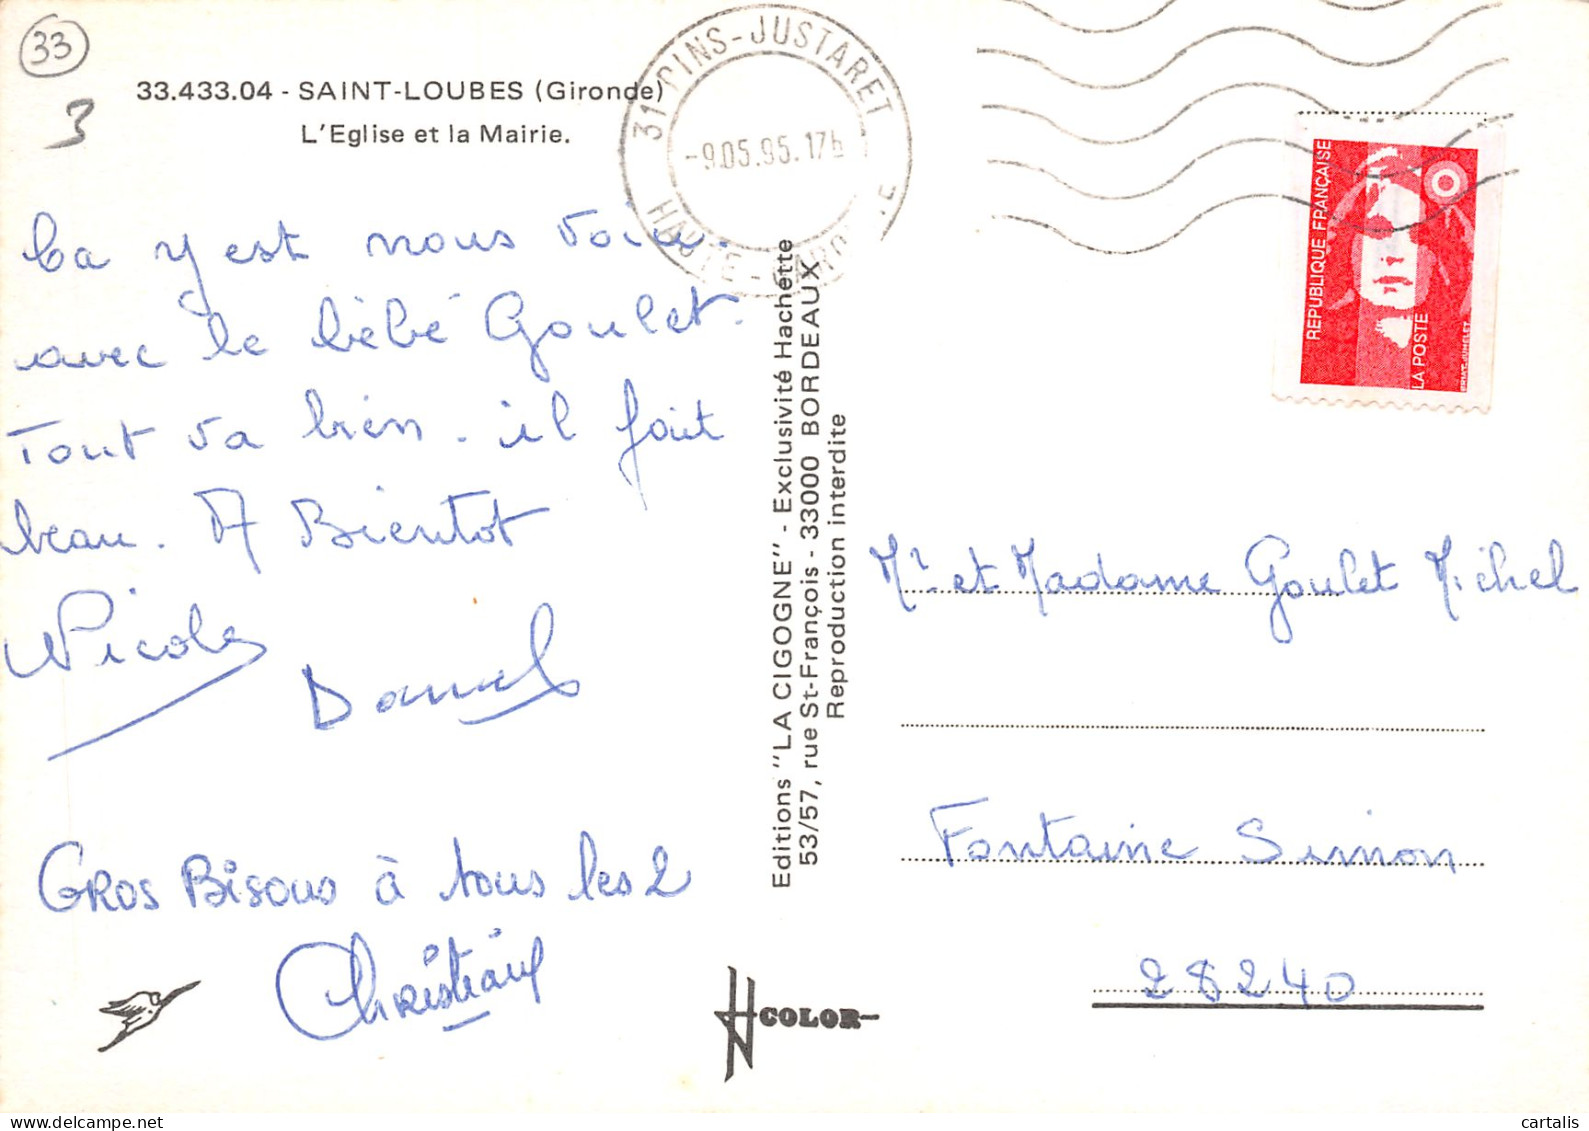 33
3
33.433.04 - SAINT-LOUBES (Gironde)
L'Eglise et la Mairie.
31 PINS-JUSTARET
-9.05.95.17h
HAUTE-GARONNE
Ca y est nous voici
avec le bébé Goulet.
Tout va bien. il fait
beau. A Bientot
Nicole
Daniel
GROS Bisous à tous les 2
Christiane
Editions "LA CIGOGNE" - Exclusivité Hachette
53/57, rue St-François - 33000 BORDEAUX
Reproduction interdite
COLOR
REPUBLIQUE FRANÇAISE
LA POSTE
Mr et Madame Goulet Michel
Fontaine Simon
28240
cartalis